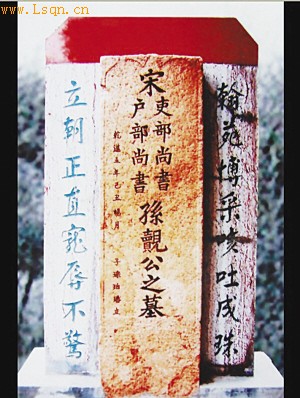 www.Lsqn.cn
翰苑博采咳吐成珠
宋吏部尚書
户部尚書
孫覿公之墓
乾道五年己丑 月 子 立
立朝正直寵辱不驚